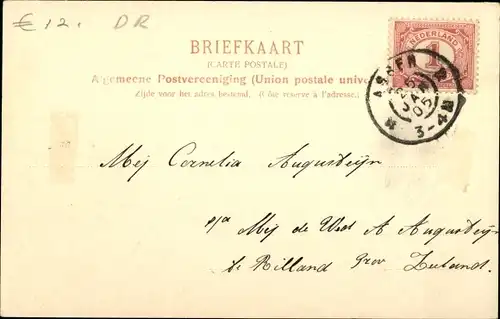 € 12. DR
BRIEFKAART
(CARTE POSTALE)
Algemeene Postvereeniging (Union postale unive
Zijde voor het adres bestemd. (Côté réservé à l'adresse.)
NEDERLAND
1
ASSEN
5 JAN 05
3-4N
Mej Cornelia Augusteijn
p/a Mej de Wed A Augusteijn
te Rilland Prov Zeeland.